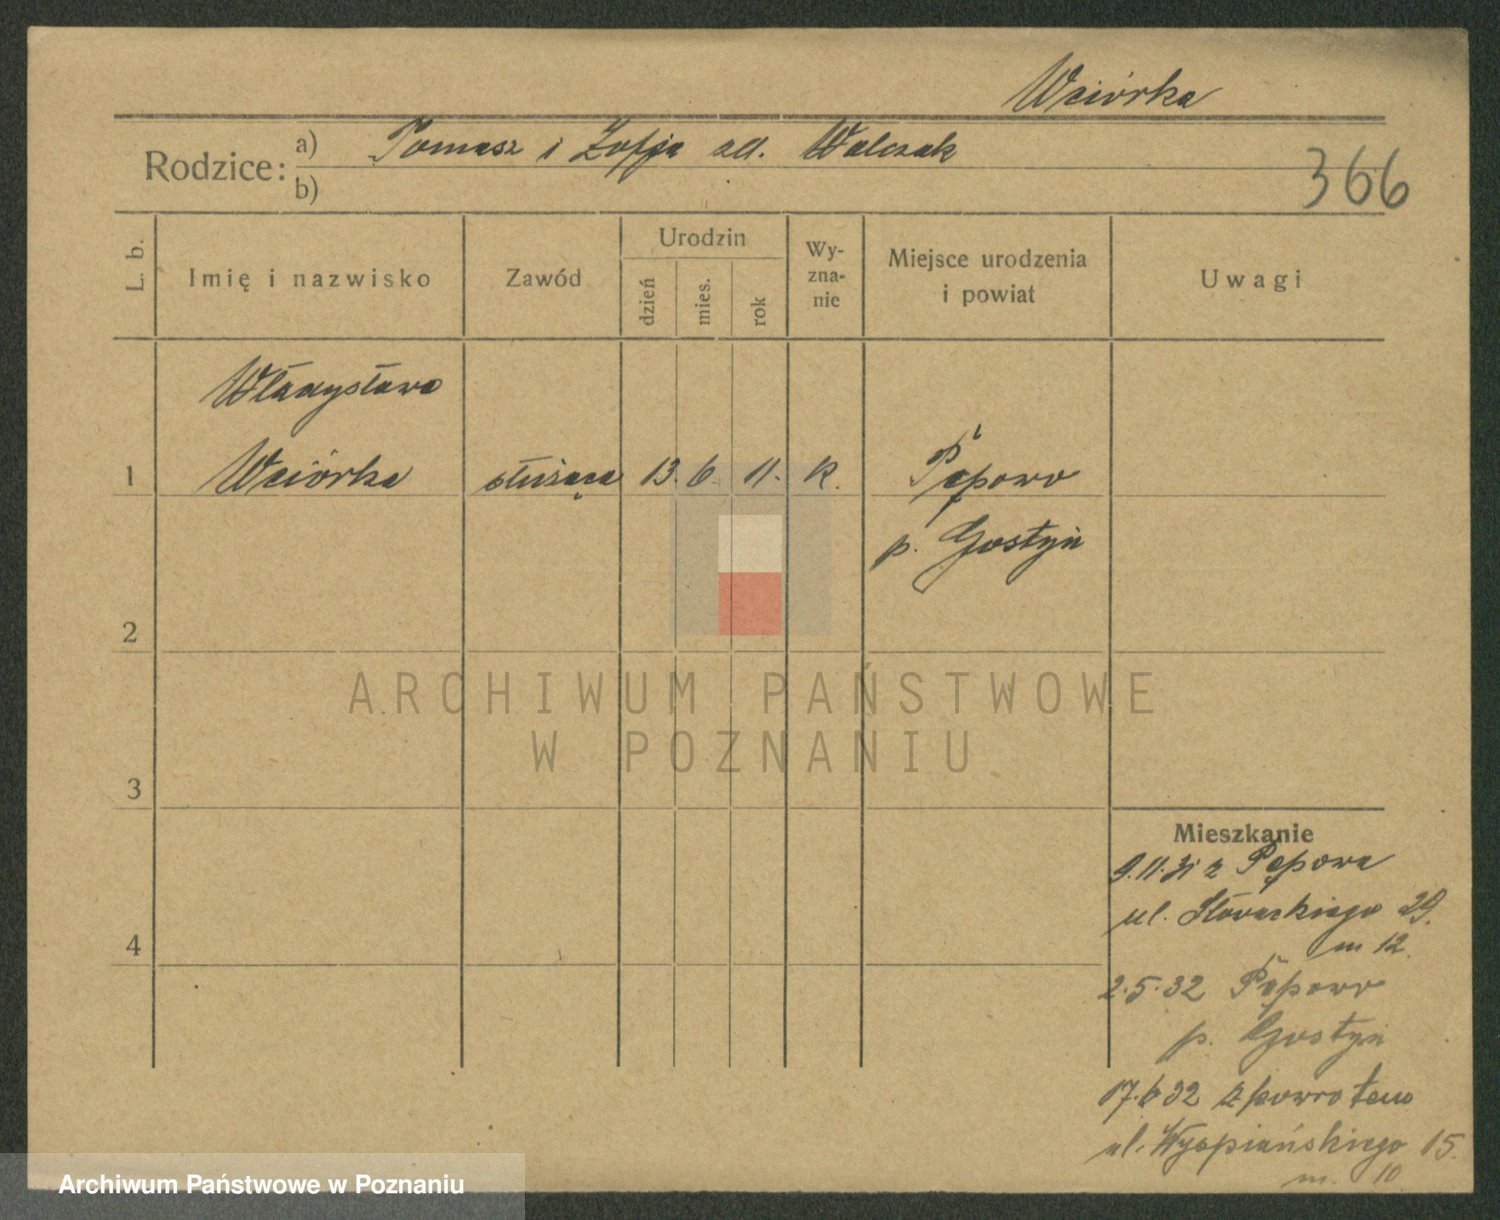 Wciórka
Rodzice: a) Tomasz i Zofja zd. Walczak
b)
366
L. b.
Imię i nazwisko
Zawód
Urodzin
dzień
mies.
rok
Wy-
zna-
nie
Miejsce urodzenia
i powiat
Uwagi
Władysława
1 Wciórka służąca 13. 6. 11. K. Pępowo
p. Gostyń
2
3
4
ARCHIWUM PAŃSTWOWE
W POZNANIU
Mieszkanie
9.11.31 z Pępowa
ul. Słowackiego 29.
m 12.
2.5.32 Pępowo
p. Gostyń
17.6 32 z powrotem
ul. Wyspiańskiego 15.
m. 10.
Archiwum Państwowe w Poznaniu